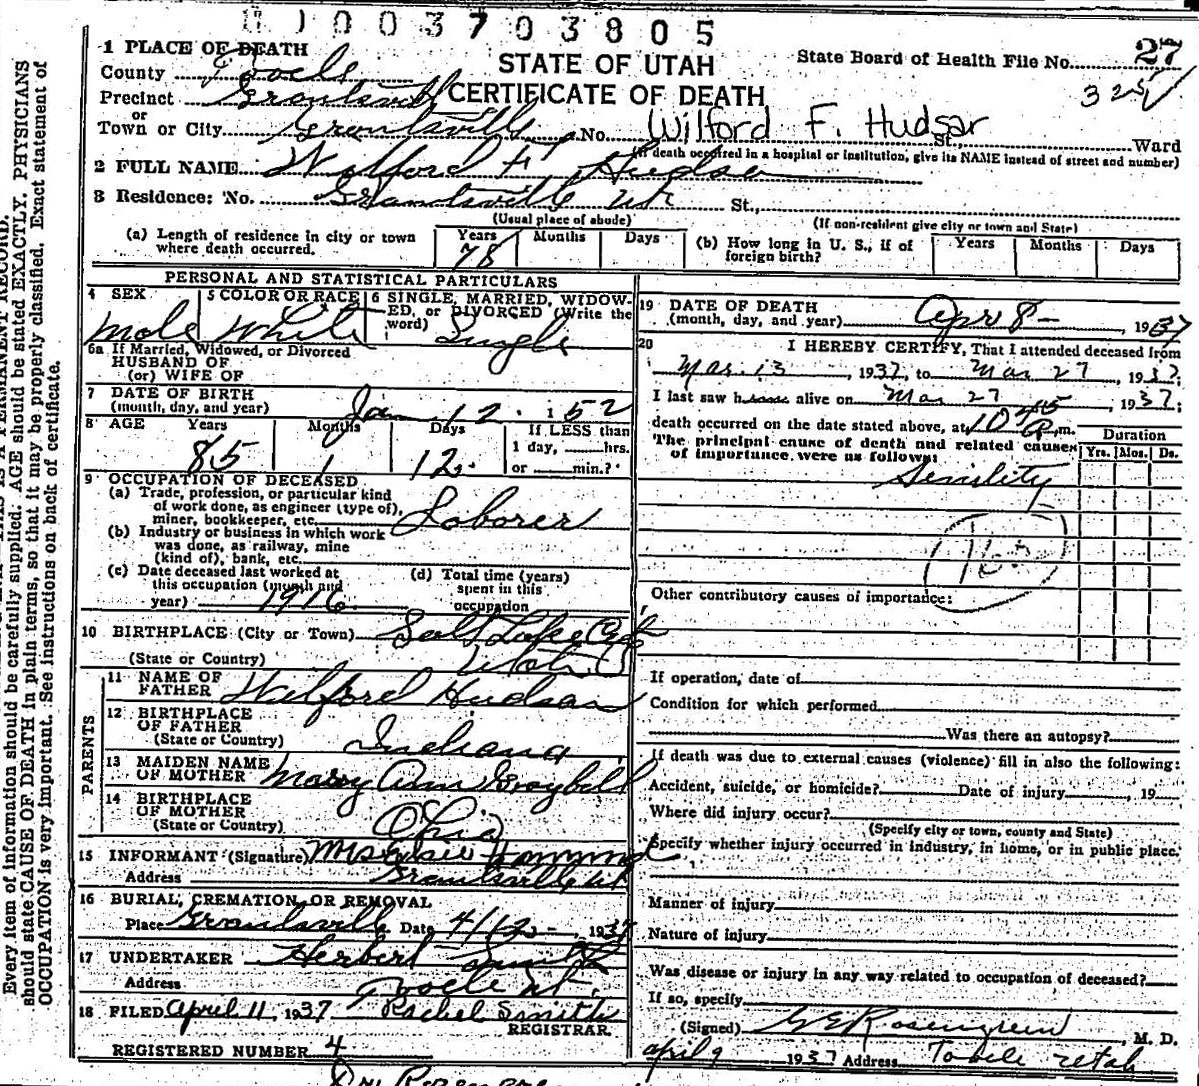 0 1 0 0 3 7 0 3 8 0 5
1 PLACE OF DEATH
STATE OF UTAH
CERTIFICATE OF DEATH
State Board of Health File No. 27
325
County Tooele
Precinct Grantsville
or
Town or City Grantsville No. St., Ward
Wilford F. Hudsar
(If death occurred in a hospital or institution, give its NAME instead of street and number)
2 FULL NAME Wilford F Hudson
3 Residence: No. Grantsville Ut St.,
(Usual place of abode) (If non-resident give city or town and State)
(a) Length of residence in city or town where death occurred. Years 78 Months Days
(b) How long in U. S., if of foreign birth? Years Months Days
PERSONAL AND STATISTICAL PARTICULARS
4 SEX Male
5 COLOR OR RACE White
6 SINGLE, MARRIED, WIDOWED, or DIVORCED (Write the word) Single
6a If Married, Widowed, or Divorced
HUSBAND OF
(or) WIFE OF
7 DATE OF BIRTH
(month, day, and year) Jan 12. 1852
8 AGE Years 85 Months 1 Days 12 If LESS than 1 day, hrs. or min.?
9 OCCUPATION OF DECEASED
(a) Trade, profession, or particular kind
of work done, as engineer (type of),
miner, bookkeeper, etc. Laborer
(b) Industry or business in which work
was done, as railway, mine
(kind of), bank, etc.
(c) Date deceased last worked at
this occupation (month and
year) 1916
(d) Total time (years)
spent in this
occupation
10 BIRTHPLACE (City or Town) Salt Lake City
(State or Country) Utah
PARENTS
11 NAME OF
FATHER Wilford Hudson
12 BIRTHPLACE
OF FATHER
(State or Country) Indiana
13 MAIDEN NAME
OF MOTHER Mary Ann Graybell
14 BIRTHPLACE
OF MOTHER
(State or Country) Ohio
15 INFORMANT (Signature) Mrs
Address Grantsville Ut
16 BURIAL, CREMATION, OR REMOVAL
Place Grantsville Date 4/12 - , 1937
17 UNDERTAKER Herbert
Address Tooele Ut.
18 FILED April 11, 1937 Rachel Smith
REGISTRAR.
REGISTERED NUMBER 4
19 DATE OF DEATH
(month, day, and year) Apr 8 - , 1937
20 I HEREBY CERTIFY, That I attended deceased from
Mar. 13, 1937, to Mar 27, 1937;
I last saw h alive on Mar 27, 1937;
death occurred on the date stated above, at 10 45 P m.
The principal cause of death and related causes
of importance were as follows:
Duration
Yrs. Mos. Ds.
Senility
Other contributory causes of importance:
If operation, date of
Condition for which performed
Was there an autopsy?
If death was due to external causes (violence) fill in also the following:
Accident, suicide, or homicide? Date of injury , 19
Where did injury occur?
(Specify city or town, county and State)
Specify whether injury occurred in industry, in home, or in public place.
Manner of injury
Nature of injury
Was disease or injury in any way related to occupation of deceased?
If so, specify
(Signed) Rosengreen M. D.
april 9 1937 Address Tooele utah
Every item of information should be carefully supplied. AGE should be stated EXACTLY. PHYSICIANS
should state CAUSE OF DEATH in plain terms, so that it may be properly classified. Exact statement of
OCCUPATION is very important. See instructions on back of certificate.